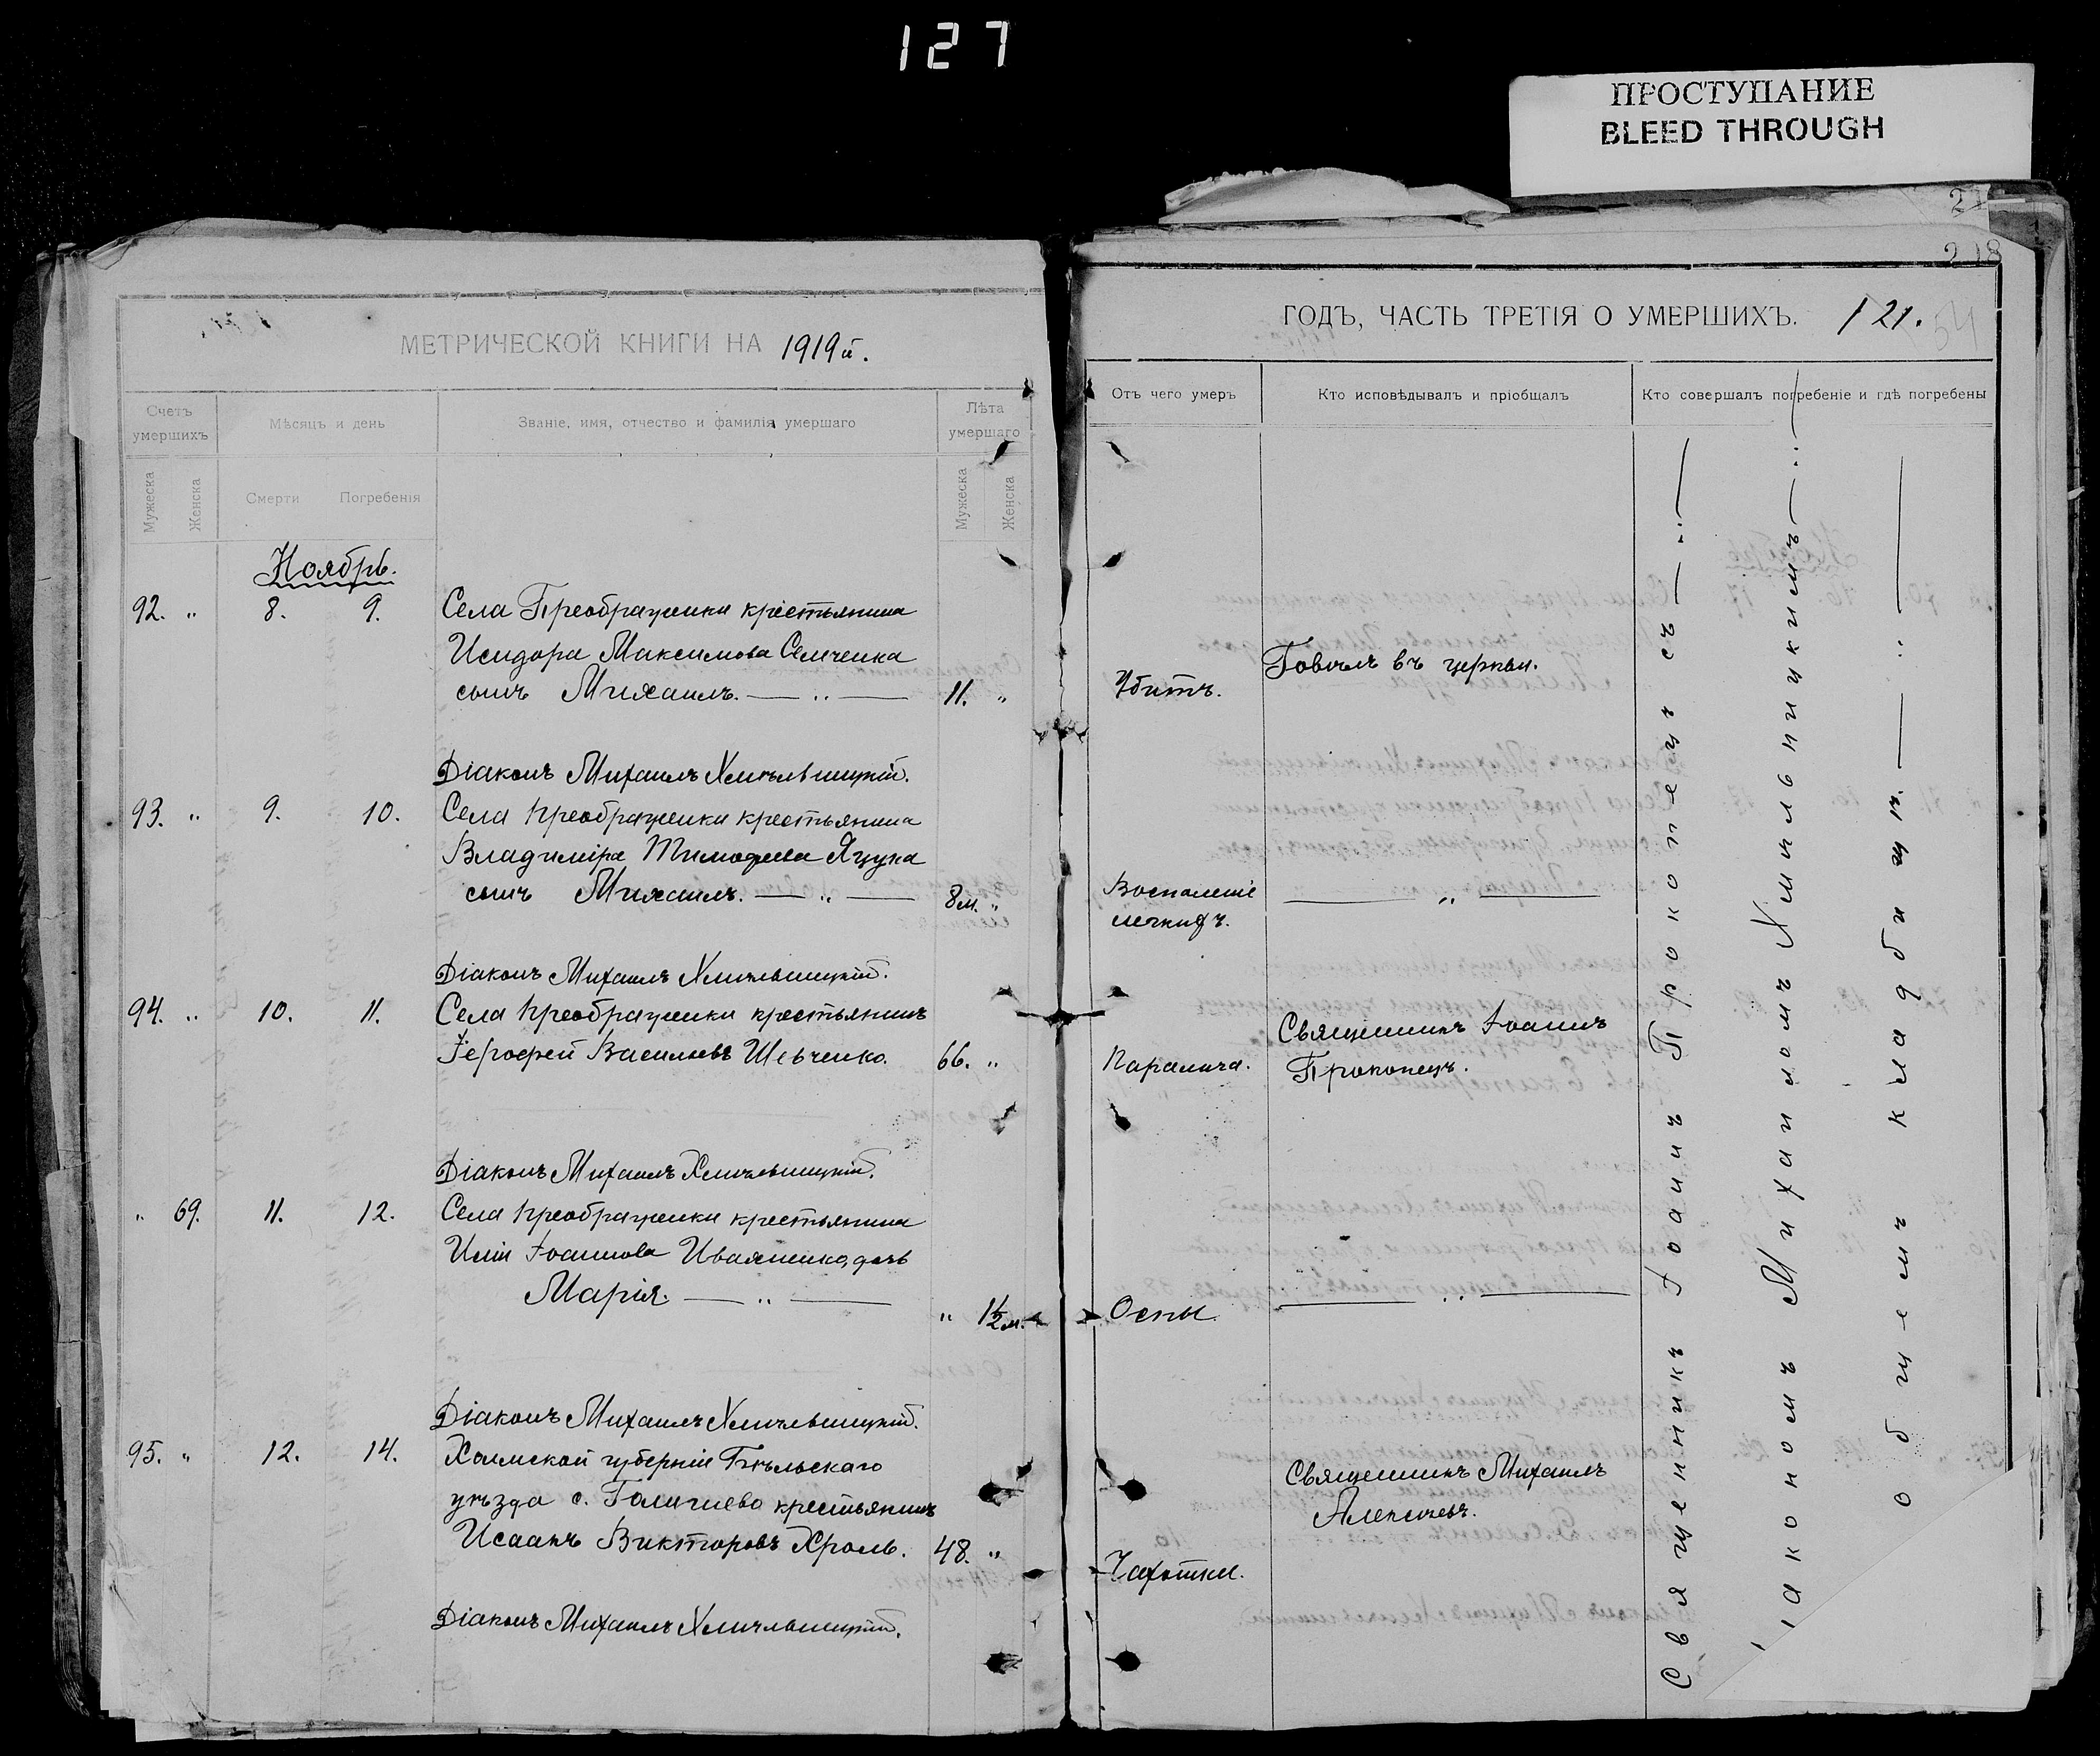 127
ПРОСТУПАНИЕ
BLEED THROUGH
218
МЕТРИЧЕСКОЙ КНИГИ НА 1919й.
Счетъ умершихъ
Мужеска
Женска
Мѣсяцъ и день
Смерти
Погребенія
Званіе, имя, отчество и фамилія умершаго
Лѣта умершаго
Мужеска
Женска
Ноябрь.
92. " 8. 9. Села Преображенки крестьянина
Исидора Максимова Семченка
сынъ Михаилъ. — " — 11. "
Діаконъ Михаилъ Хмильницкій.
93. " 9. 10. Села Преображенки крестьянина
Владиміра Тимофеева Яцука
сынъ Михаилъ. — " — 8м. "
Діаконъ Михаилъ Хмильницкій.
94. " 10. 11. Села Преображенки крестьянинъ
Іерофей Васильевъ Шевченко. 66. "
Діаконъ Михаилъ Хмильницкій.
" 69. 11. 12. Села Преображенки крестьянина
Иліи Іоаннова Иваненко, дочь
Марія. — " — " 1½м.
Діаконъ Михаилъ Хмильницкій.
95. " 12. 14. Холмской губерніи Бѣльскаго
уѣзда с. крестьянинъ
Исаакъ Викторовъ Хроль. 48. "
Діаконъ Михаилъ Хмильницкій.
ГОДЪ, ЧАСТЬ ТРЕТІЯ О УМЕРШИХЪ. 121.
Отъ чего умеръ
Кто исповѣдывалъ и пріобщалъ
Кто совершалъ погребеніе и гдѣ погребены
Убитъ.
Говѣлъ въ церкви.
Воспаленіе
легкихъ.
— " —
Паралича.
Священникъ Іоаннъ
Прокопецъ.
Оспы.
— " —
Чахотки.
Священникъ Михаилъ
Алексѣевъ.
Священникъ Іоаннъ Прокопецъ съ — " —
іакономъ Михаиломъ Хмильницкимъ — " —
общемъ кладбищѣ. — " —